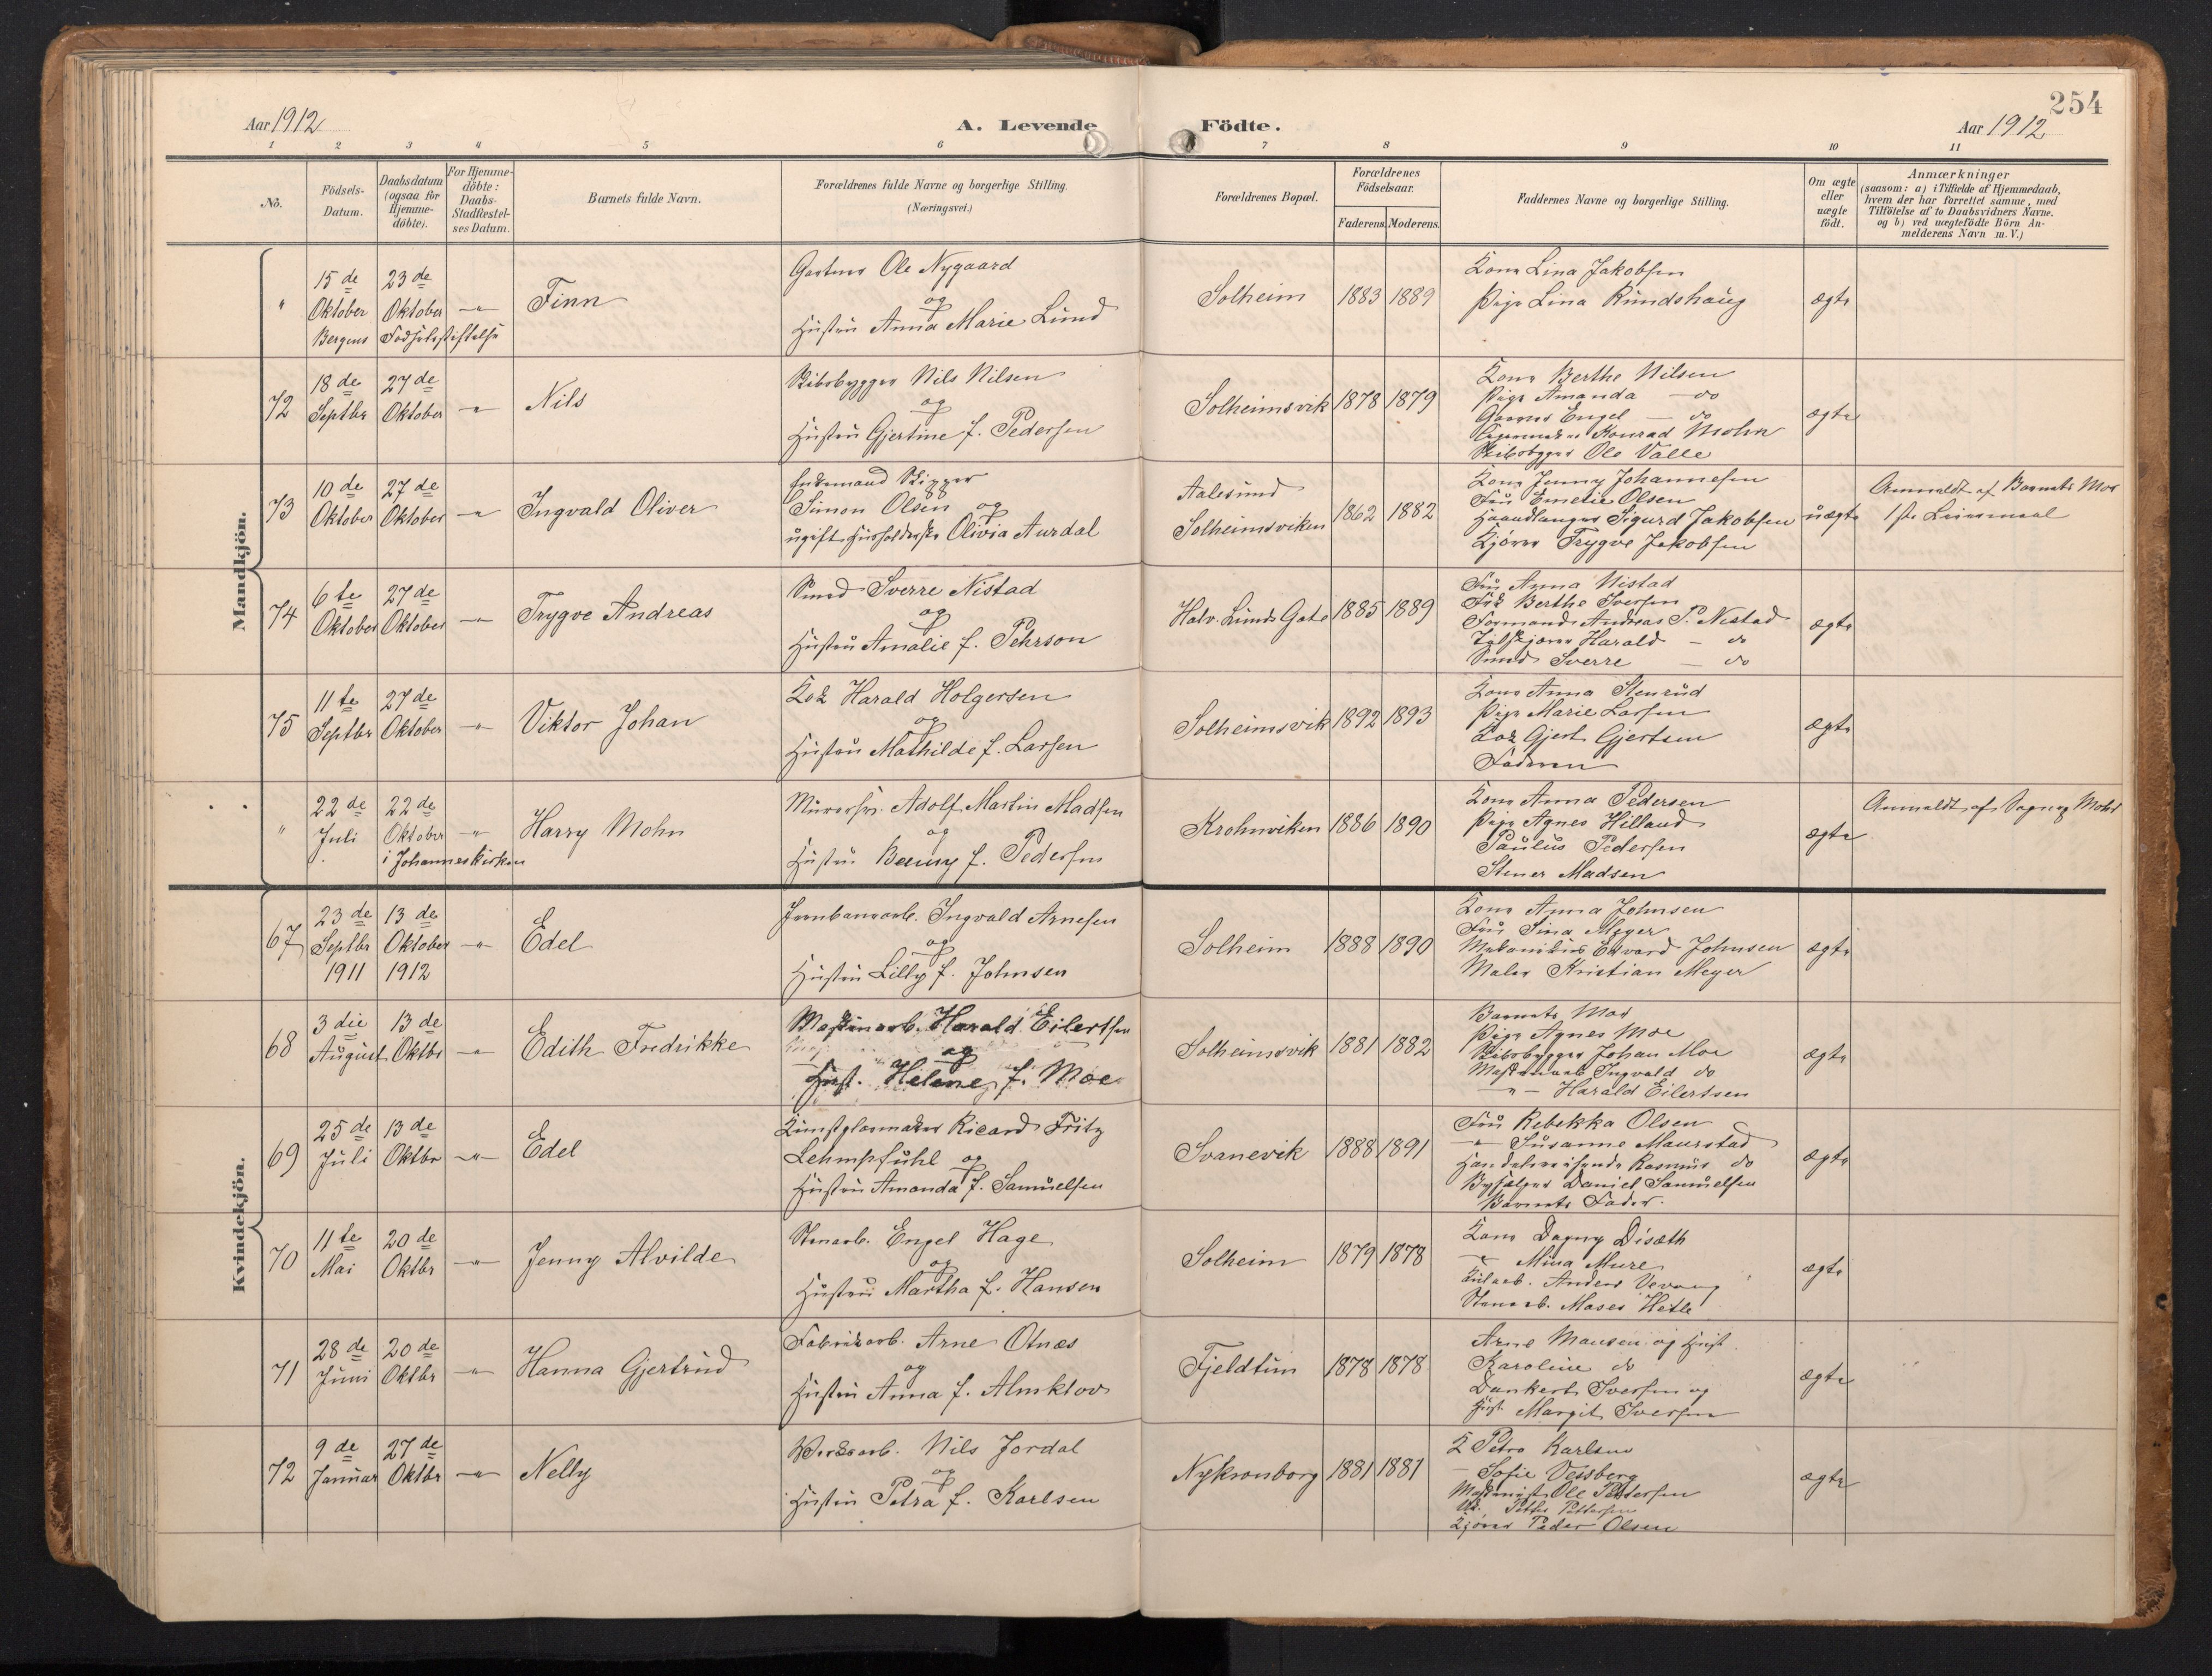 254
Aar 1912 A. Levende Födte. Aar 1912
1 2 3 4 5 6 7 8 9 10 11
No. Födsels-Datum. Daabsdatum (ogsaa for Hjemme-döbte). For Hjemme-döbte: Daabs-Stadfestel-ses Datum. Barnets fulde Navn. Forældrenes fulde Navne og borgerlige Stilling. (Næringsvei.) Forældrenes Bopæl. Forældrenes Födselsaar. Faderens. Moderens. Faddernes Navne og borgerlige Stilling. Om ægte eller uægte födt. Anmærkninger (saasom: a) i Tilfælde af Hjemmedaab, hvem der har forrettet samme, med Tilföielse af to Daabsvidners Navne. og b) ved uægtefödte Börn An-melderens Navn m. V.)
Mandkjön.
" 15 de Oktober 23 de Oktober -"- Finn
Bergens Fødselsstiftelse
Gartner Ole Nygaard
og
Hustru Anna Marie Lund
Solheim 1883 1889
Kone Lina Jakobsen
Pige Lina Rundshaug
ægte
72 18 de Septbr 27 de Oktober -"- Nils
Skibsbygger Nils Nilsen
og
Hustru Gjertine f. Pedersen
Solheimsvik 1878 1879
Kone Berthe Nilsen
Pige Amanda — do
Engel — do
Konrad Mohn
Skibsbygger Ole Valle
ægte
73 10 de Oktober 27 de Oktober -"- Ingvald Oliver
Enkemand Skipper
Simon Olsen og
ugift Husholderske Olivia Aurdal
Aalesund
Solheimsviken 1862 1882
Kone Jenny Johannesen
Fru Emelie Olsen
Haandlanger Sigurd Jakobsen
Kjører Trygve Jakobsen
uægte
Anmeldt af Barnets Mor
1ste Leiermaal
74 6 te Oktober 27 de Oktober -"- Trygve Andreas
Smed Sverre Nistad
og
Hustru Amalie f. Pehrson
Halv. Lunds Gate 1885 1889
Fru Anna Nistad
Frk Berthe Iversen
Formand Andreas P. Nistad
Harald — do
Smed Sverre — do
ægte
75 11 te Septbr 27 de Oktober -"- Viktor Johan
Kok Harald Holgersen
og
Hustru Mathilde f. Larsen
Solheimsvik 1892 1893
Kone Anna Stenrud
Pige Marie Larsen
Kok Gjert Gjertsen
Faderen
ægte
" 22 de Juli 22 de Oktober -"- Harry Mohn
i Johanneskirken
Murersv. Adolf Martin Madsen
og
Hustru Benny f. Pedersen
Krohnviken 1886 1890
Kone Anna Pedersen
Pige Agnes Hilland
Paulus Pedersen
Stener Madsen
ægte
Anmeldt af Sognep. Mohn
Kvindekjön.
67 23 de Septbr 1911 13 de Oktober 1912 -"- Edel
Jernbanearb. Ingvald Arnesen
og
Hustru Lilly f. Johnsen
Solheim 1888 1890
Kone Anna Johnsen
Fru Sina Meyer
Mekanikus Edvard Johnsen
Maler Kristian Meyer
ægte
68 3 die August 13 de Oktbr -"- Edith Fredrikke
Maskinarb. Harald Eilertsen
og
Hust. Helene f. Moe
Solheimsvik 1881 1882
Barnets Mor
Pige Agnes Moe
Skibsbygger Johan Moe
Maskinarb Ingvald do
-"- Harald Eilertsen
ægte
69 25 de Juli 13 de Oktbr -"- Edel
Kunstglasmaker Ricard Fritz
Lehmpfuhl og
Hustru Amanda f. Samuelsen
Svanevik 1888 1891
Fru Rebekka Olsen
-"- Susanne Maurstad
Handelsreisende Rasmus do
Daniel Samuelsen
Barnets Fader.
ægte
70 11 te Mai 20 de Oktbr -"- Jenny Alvilde
Stenarb. Engel Hage
og
Hustru Martha f. Hansen
Solheim 1879 1878
Kone Dagny Disæth
-"- Mina Mure
Anders
Stenarb. Moses Hetle
ægte
71 28 de Juni 20 de Oktbr -"- Hanna Gjertrud
Fabrikarb. Arne Otnes
og
Hustru Anna f. Almklov
Fjeldtun 1878 1878
Arne Mansen og Hust.
Karoline do
Dankert Iversen og
Hust. Margit Iversen
ægte
72 9 de Januar 27 de Oktbr -"- Nelly
Verksarb. Nils Jordal
og
Hustru Petra f. Karlsen
Nykronborg 1881 1881
K Petra Karlsen
— Sofie Vessberg
Maskinist Ole Pettersen
Pettersen
Kjører Peder Olsen
ægte